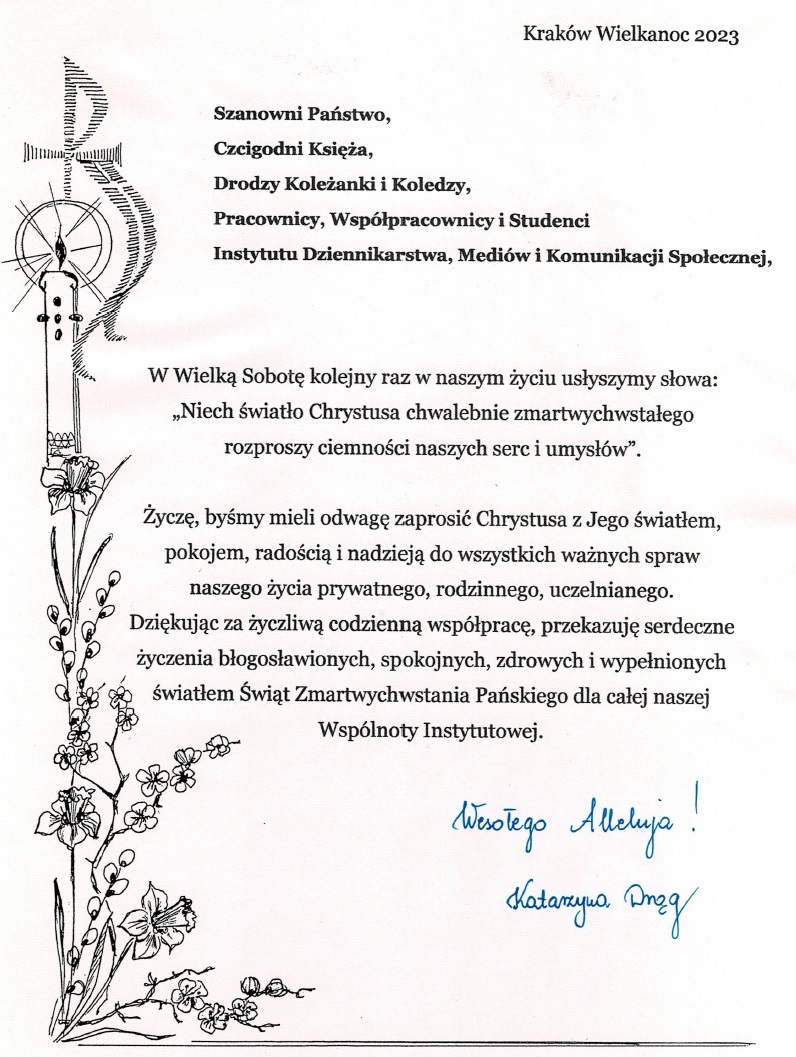 Kraków Wielkanoc 2023
Szanowni Państwo,
Czcigodni Księża,
Drodzy Koleżanki i Koledzy,
Pracownicy, Współpracownicy i Studenci
Instytutu Dziennikarstwa, Mediów i Komunikacji Społecznej,
W Wielką Sobotę kolejny raz w naszym życiu usłyszymy słowa:
„Niech światło Chrystusa chwalebnie zmartwychwstałego
rozproszy ciemności naszych serc i umysłów”.
Życzę, byśmy mieli odwagę zaprosić Chrystusa z Jego światłem,
pokojem, radością i nadzieją do wszystkich ważnych spraw
naszego życia prywatnego, rodzinnego, uczelnianego.
Dziękując za życzliwą codzienną współpracę, przekazuję serdeczne
życzenia błogosławionych, spokojnych, zdrowych i wypełnionych
światłem Świąt Zmartwychwstania Pańskiego dla całej naszej
Wspólnoty Instytutowej.
Wesołego Alleluja!
Katarzyna Drąg